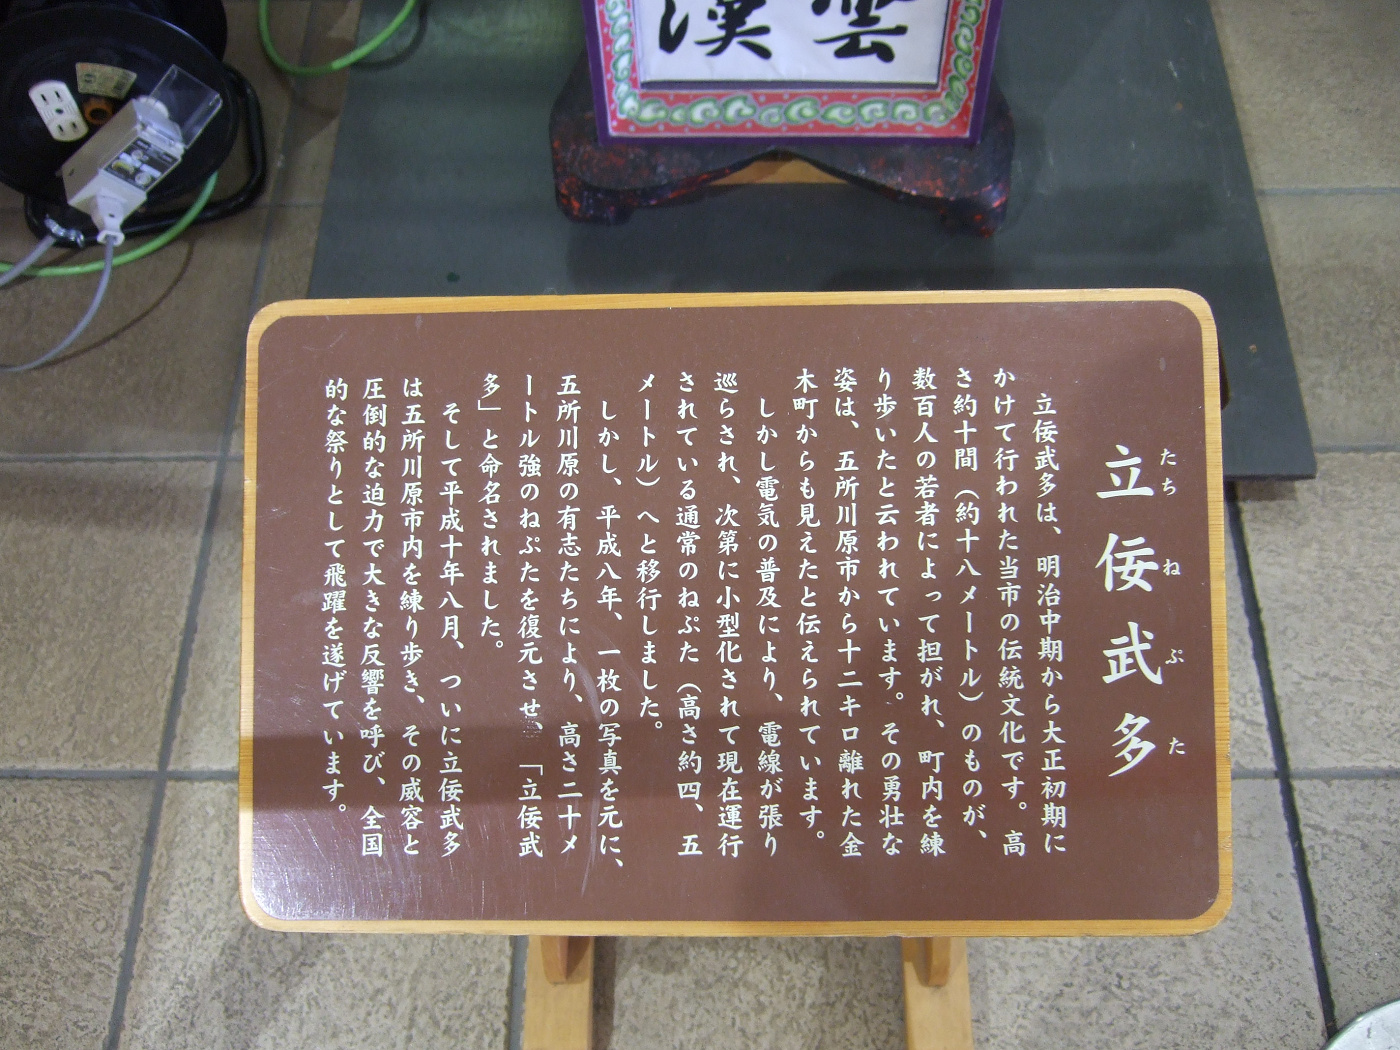 雲漢
立佞武多
たちねぷた
立佞武多は、明治中期から大正初期に
かけて行われた当市の伝統文化です。高
さ約十間（約十八メートル）のものが、
数百人の若者によって担がれ、町内を練
り歩いたと云われています。その勇壮な
姿は、五所川原市から十二キロ離れた金
木町からも見えたと伝えられています。
しかし電気の普及により、電線が張り
巡らされ、次第に小型化されて現在運行
されている通常のねぷた（高さ約四、五
メートル）へと移行しました。
しかし、平成八年、一枚の写真を元に、
五所川原の有志たちにより、高さ二十メ
ートル強のねぷたを復元させ、「立佞武
多」と命名されました。
そして平成十年八月、ついに立佞武多
は五所川原市内を練り歩き、その威容と
圧倒的な迫力で大きな反響を呼び、全国
的な祭りとして飛躍を遂げています。